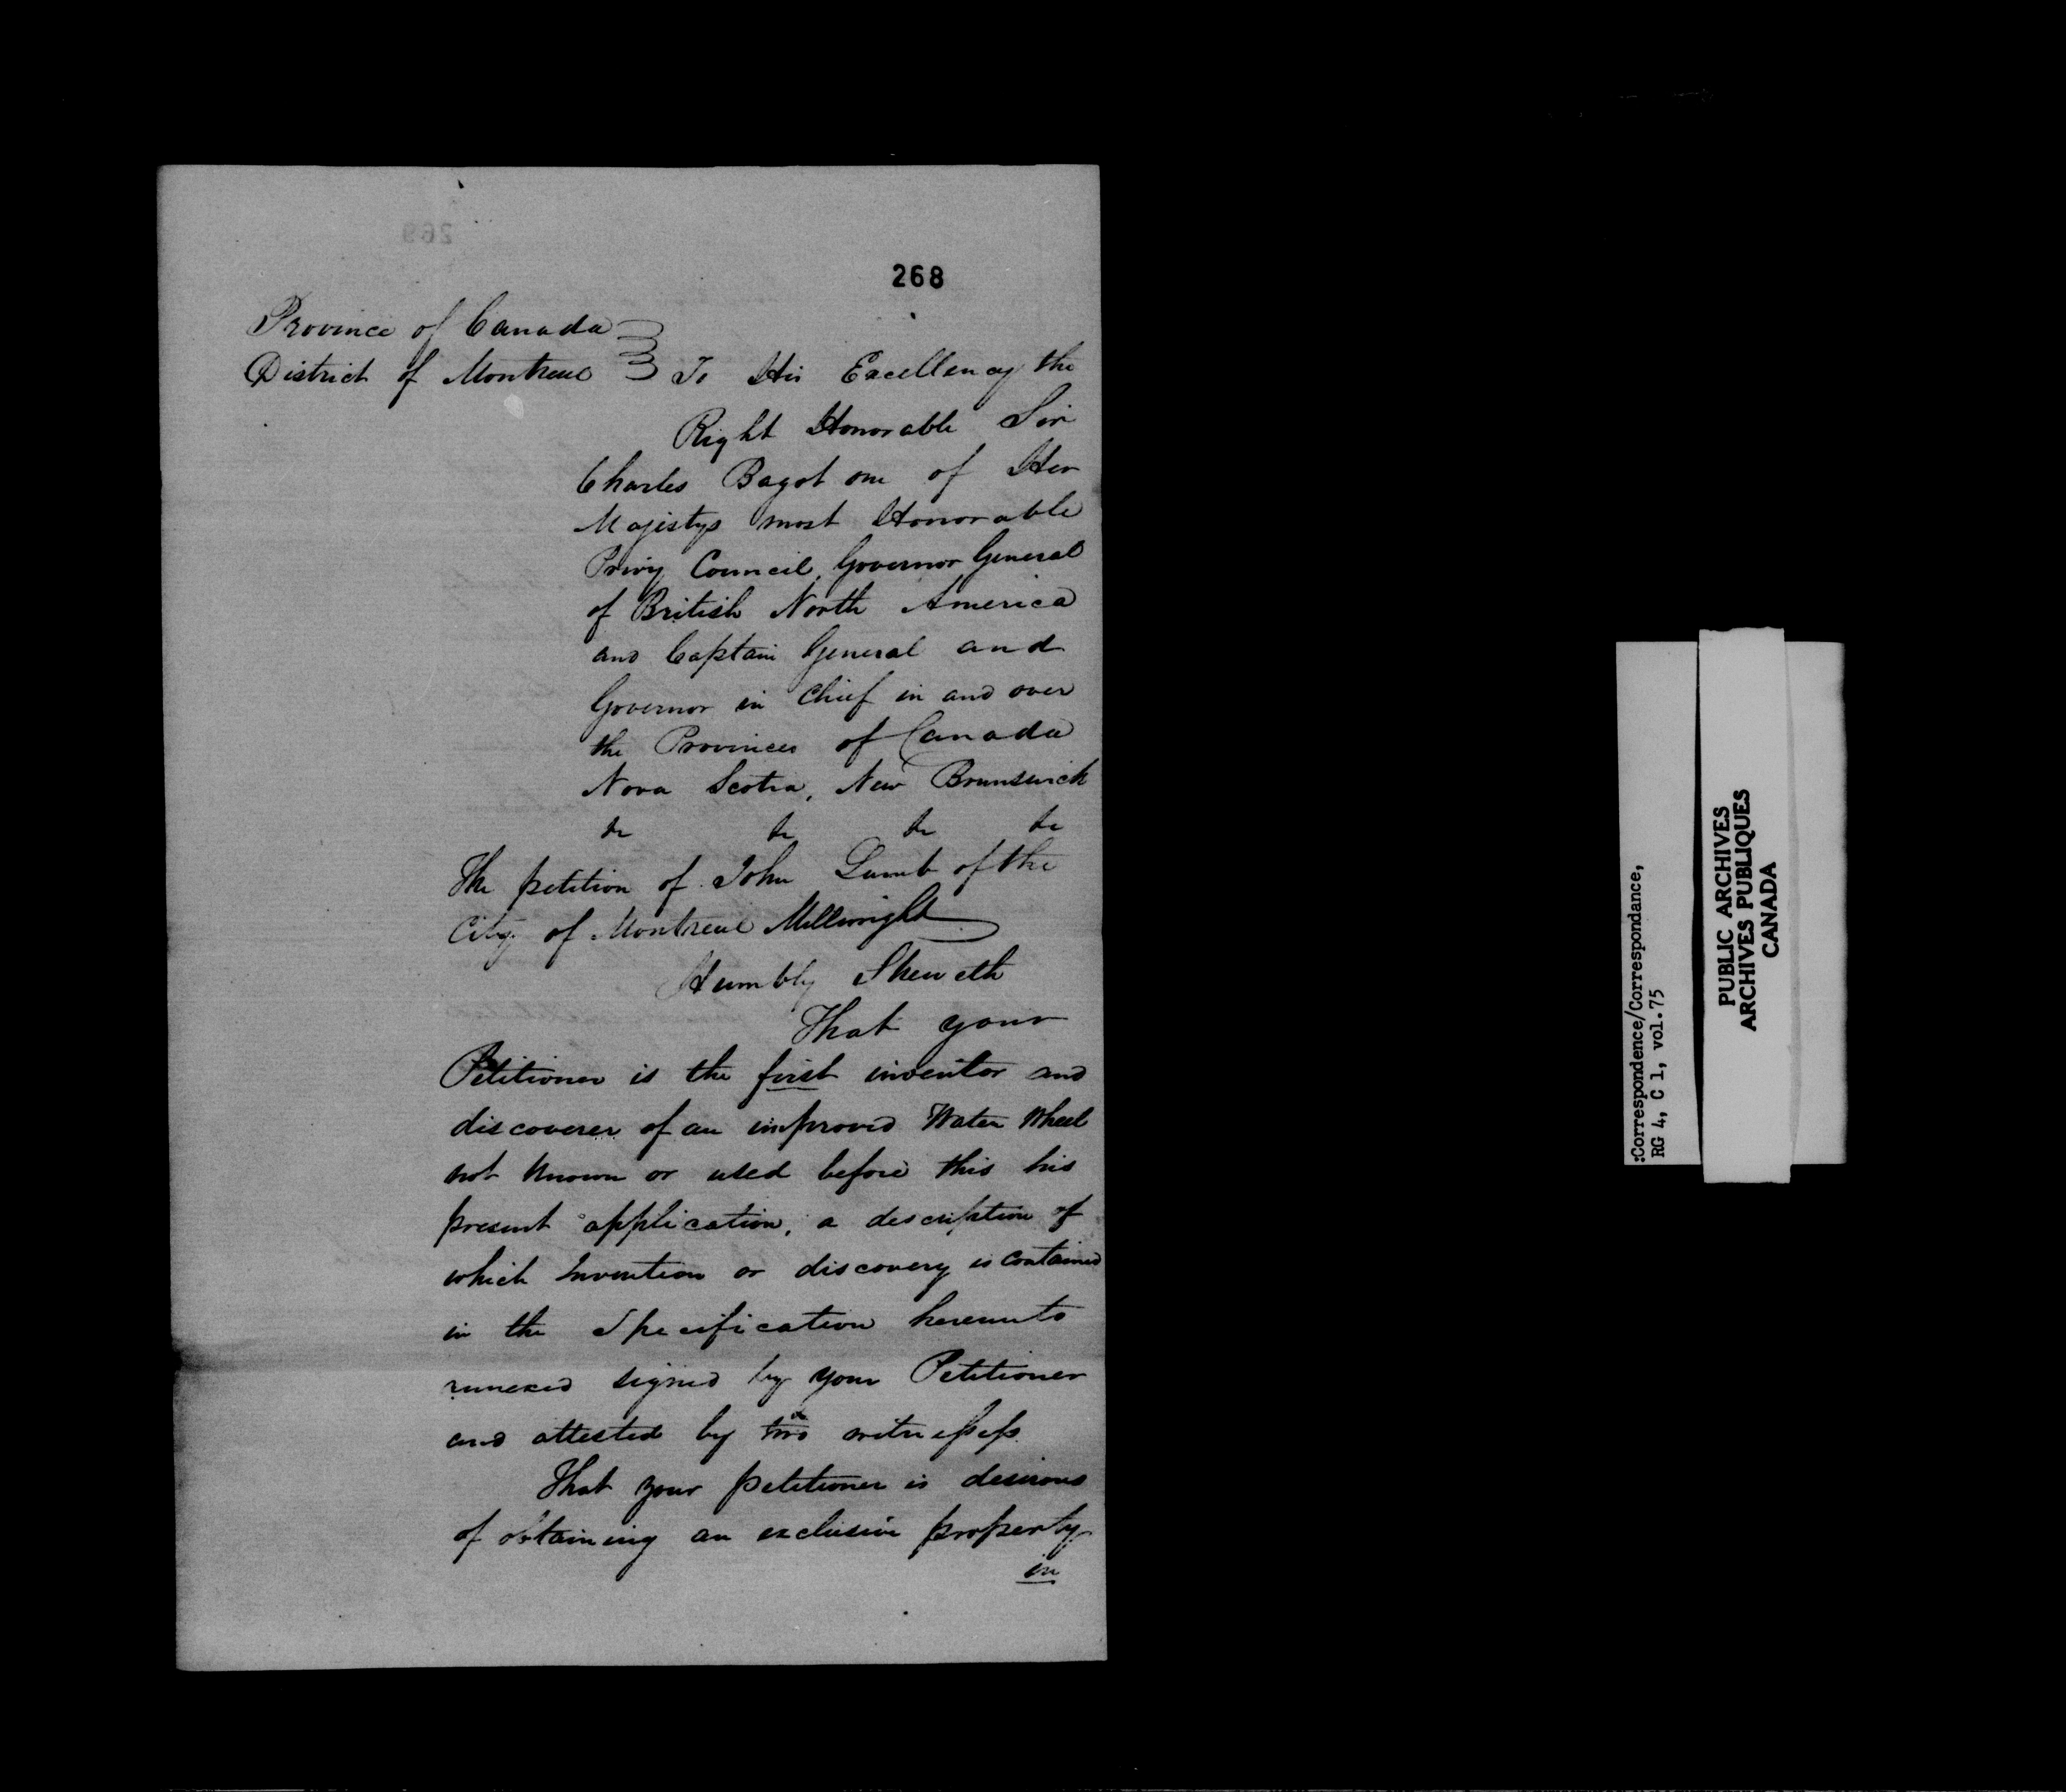 268
Province of Canada
District of Montreal
To His Excellency the
Right Honorable Sir
Charles Bagot one of Her
Majestys most Honorable
Privy Council, Governor General
of British North America
and Captain General and
Governor in Chief in and over
the Provinces of Canada
Nova Scotia, New Brunswick
&c &c &c &c
The petition of John Lamb of the
City of Montreal Millwright
Humbly Sheweth
That your
Petitioner is the first inventor and
discoverer of an improved Water Wheel
not known or used before this his
present application, a description of
which Invention or discovery is contained
in the Specification hereunto
annexed signed by your Petitioner
and attested by two witnesses
That your petitioner is desirous
of obtaining an exclusive property
in
:Correspondence/Correspondance,
RG 4, C 1, vol.75
PUBLIC ARCHIVES
ARCHIVES PUBLIQUES
CANADA